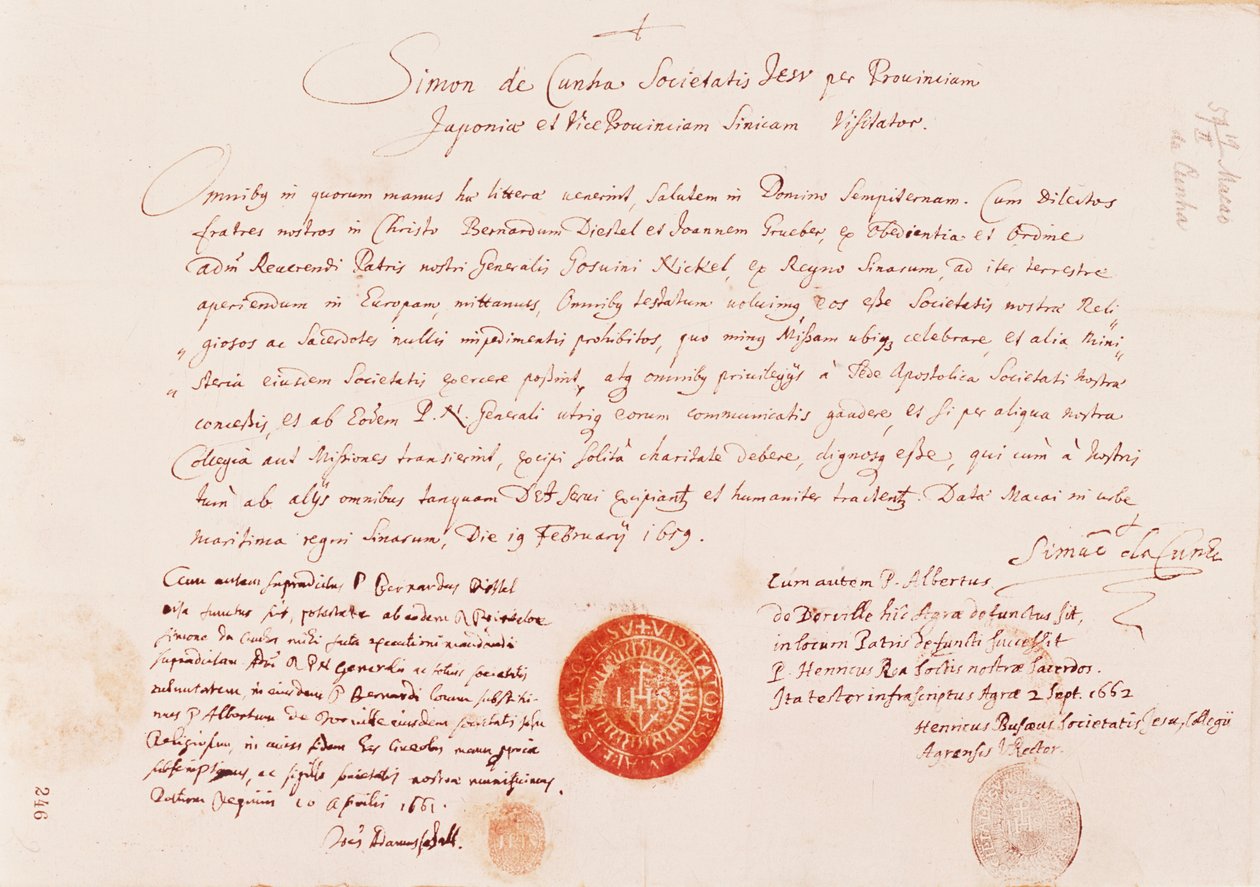 Simon de Cunha Societatis Jesv per Prouinciam
Japoniæ et ViceProuinciam Sinicam Visitator.
Omniby in quorum manus hæ litteræ uenerint, salutem in Domino Sempiternam. Cum Dilectos
fratres nostros in Christo Bernardum Diestel et Joannem Grueber, ex Obedientia et Ordine
admᷤ Reverendi Patris nostri Generalis Gosuini Nickel, ex Regno Sinarum, ad iter terrestre
aperiendum in Europam, mittamus, Omniby testatum uoluimꝰ, eos eße Societatis nostræ Reli
giosos ac Sacerdotes nullis impedimentis prohibitos, quo minꝰ Mißam ubiqꝫ celebrare, et alia Mini
steria eiusdem Societatis exercere poßint, atq omniby privilegijs à Sede Apostolica Societati nostræ
conceßis, et ab Eodem P. N. Generali utriq eorum communicatis gaudere, et si per aliqua nostra
Collegia aut Mißiones transierint, excipi solita charitate debere, dignosq eße, qui cùm à nostris
tùm ab alijs omnibus tanquam DEI Serui excipiantꝰ et humaniter tractentꝰ. Data Macai in urbe
maritima regni Sinarum, Die 19 Februarij 1659.
Simaõ da Cunha
Cum autem supradictus P Bernardus Diestel
vita functus sit, potestate ab eodem R P Visitatore
Simone da Cunha mihi facta
supradictam Adm R P N Generalis ac totius societatis
in eiusdem P Bernardi locum substitui
mus P Albertum de Dorville eiusdem societatis Jesu
Religiosum, in cuius fidem has litteras manu propria
subscripsimus, ac sigillo societatis nostræ muniuimus.
10 Aprilis 1661.
Joes Adamus Schall.
Cum autem P. Albertus
de Dorville hîc Agræ defunctus sit,
in locum Patris defuncti succeßit
P. Henricus Roa Soctis nostræ Sacerdos.
Ita testor infrascriptus Agræ 2 Sept. 1662
Henricus Busæus Societatis Jesu, Collegij
Agrensis VRector.
IHS
59 19/II Macao
da Cunha
246